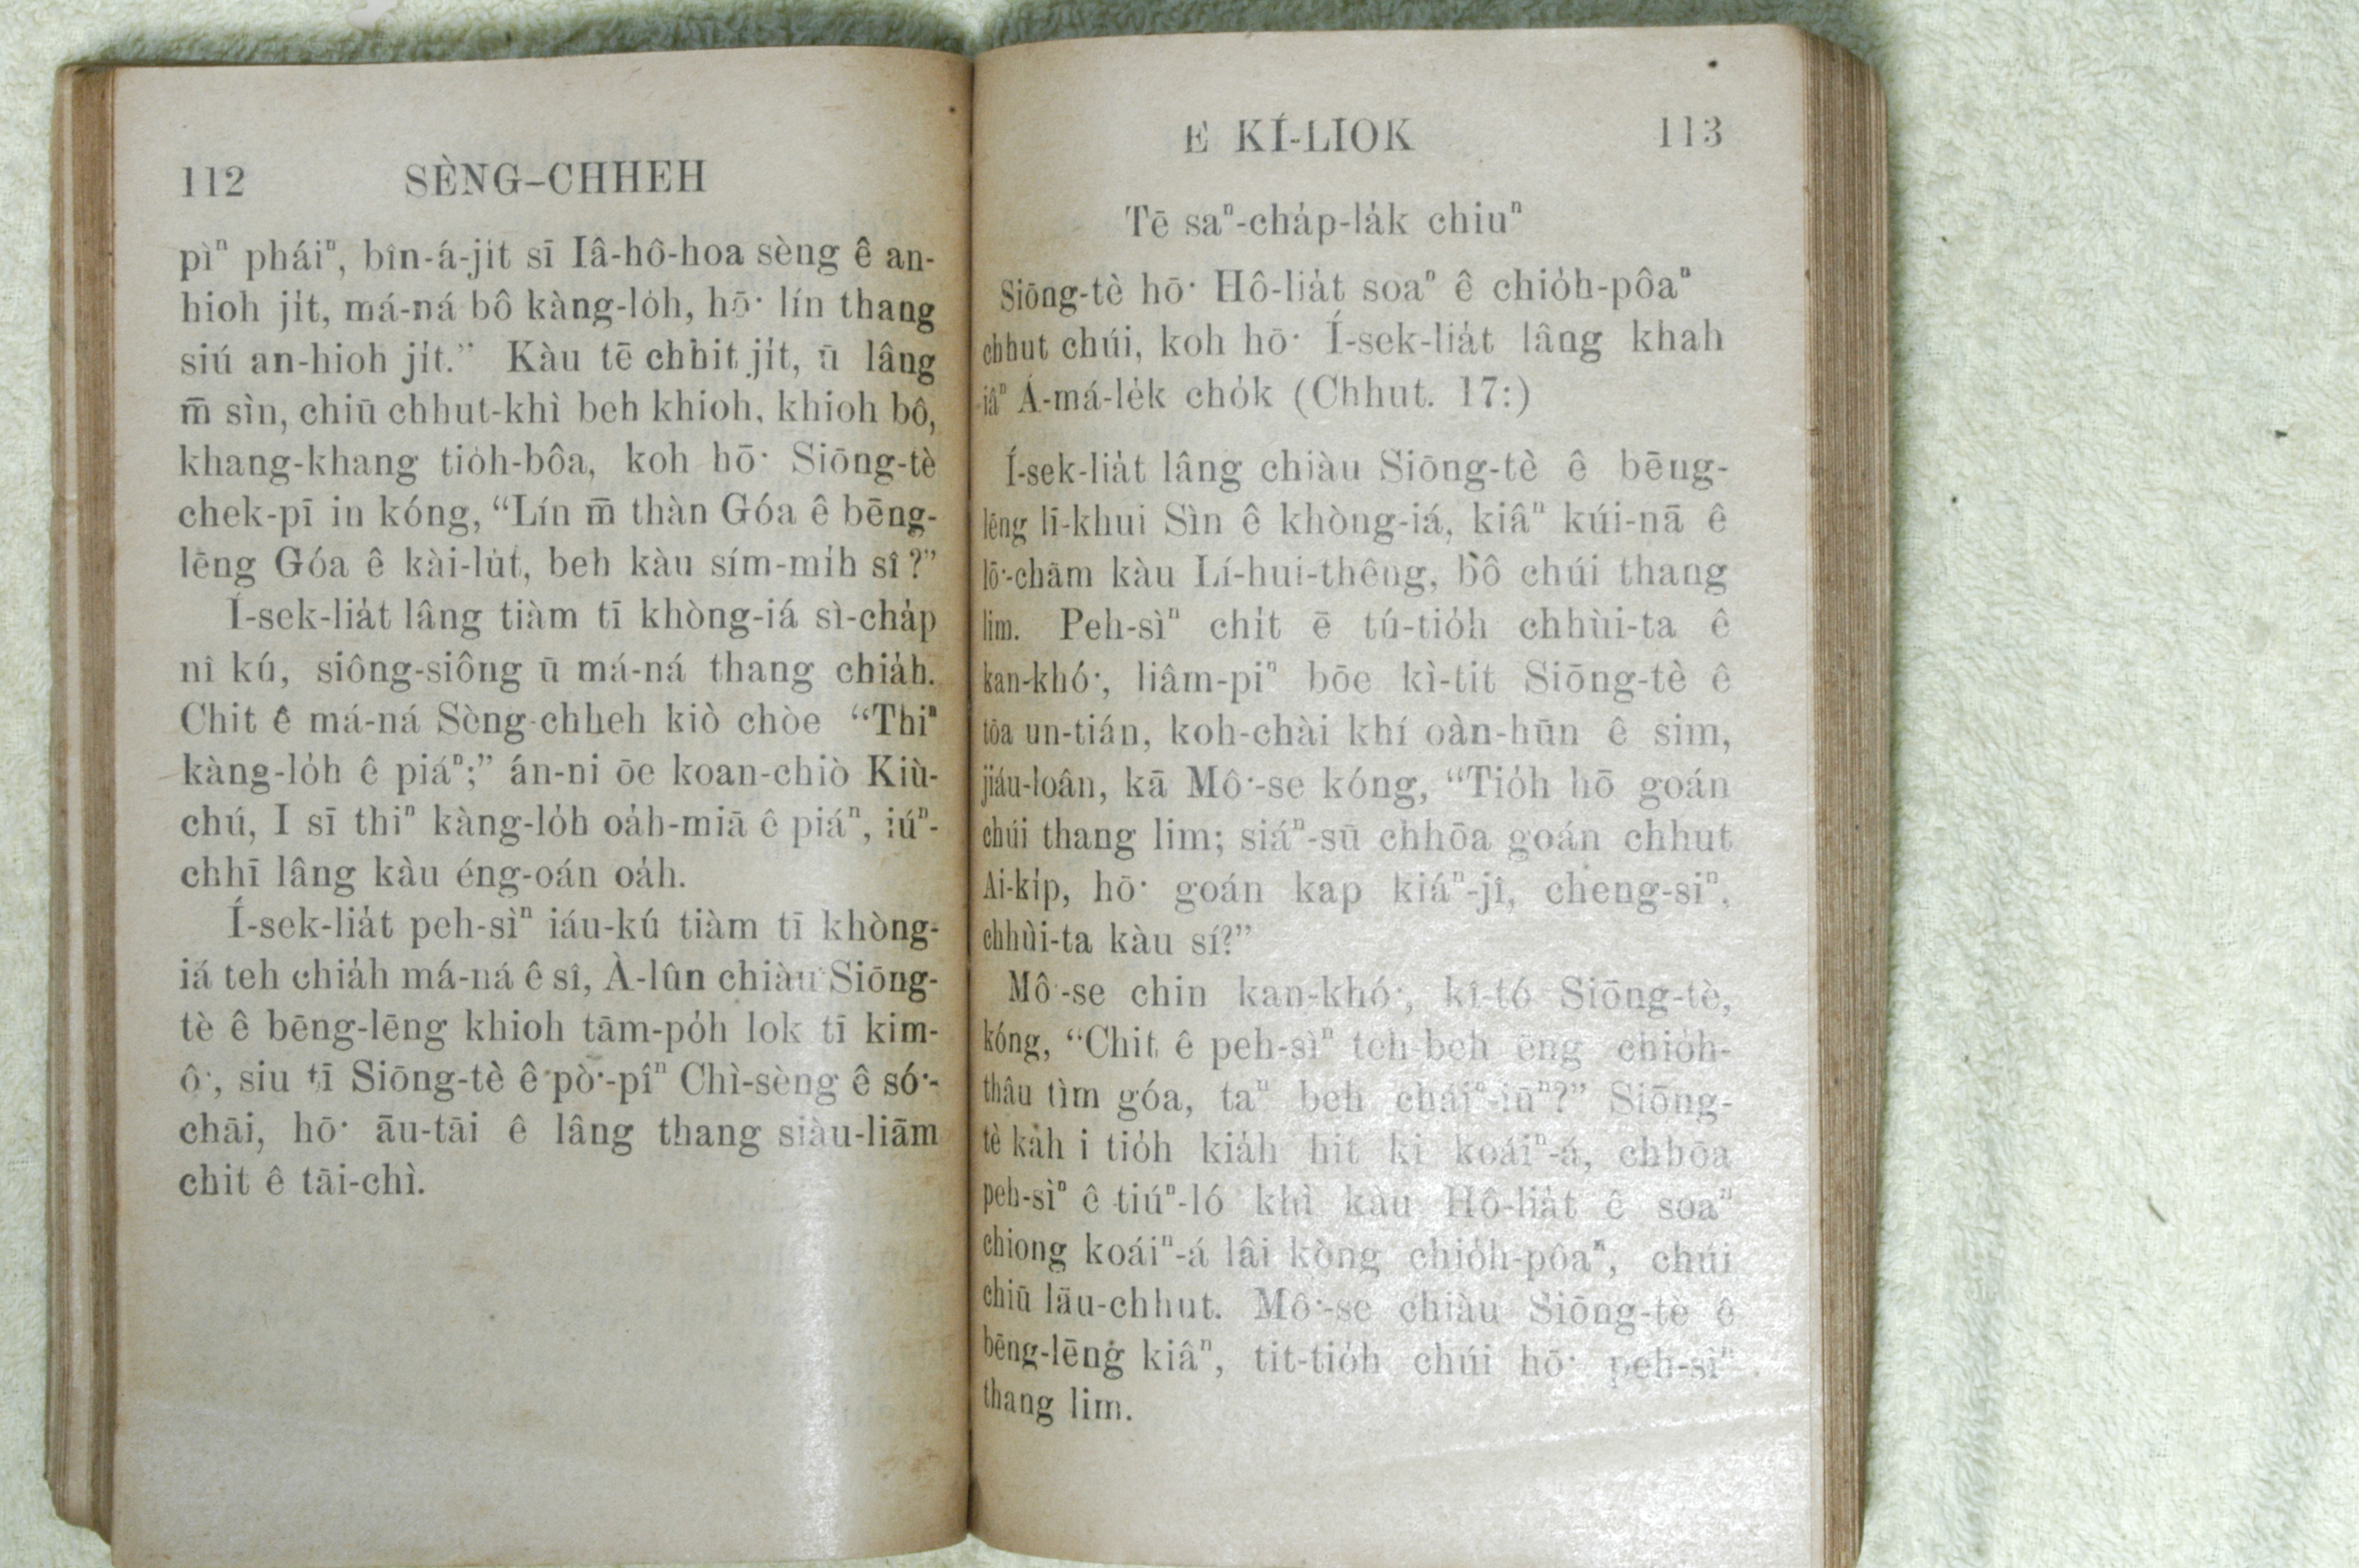 112 SÈNG-CHHEH
pìⁿ pháiⁿ, bîn-á-ji̍t sī Iâ-hô-hoa sèng ê an-
hioh ji̍t, má-ná bô kàng-lo̍h, hō͘ lín thang
siú an-hioh ji̍t." Kàu tē chhit ji̍t, ū lâng
m̄ sìn, chiū chhut-khì beh khioh, khioh bô,
khang-khang tio̍h-bôa, koh hō͘ Siōng-tè
chek-pī in kóng, "Lín m̄ thàn Góa ê bēng-
lēng Góa ê kài-lu̍t, beh kàu sím-mi̍h sî?"
Í-sek-lia̍t lâng tiàm tī khòng-iá sì-cha̍p
nî kú, siông-siông ū má-ná thang chia̍h.
Chit ê má-ná Sèng-chheh kiò chòe "Thiⁿ
kàng-lo̍h ê piáⁿ;" án-ni ōe koan-chiò Kiù-
chú, I sī thiⁿ kàng-lo̍h oa̍h-miā ê piáⁿ, iúⁿ-
chhī lâng kàu éng-oán oa̍h.
Í-sek-lia̍t peh-sìⁿ iáu-kú tiàm tī khòng-
iá teh chia̍h má-ná ê sî, À-lûn chiàu Siōng-
tè ê bēng-lēng khioh tām-po̍h lok tī kim-
ô͘, siu tī Siōng-tè ê pò͘-pîⁿ Chì-sèng ê só͘-
chāi, hō͘ āu-tāi ê lâng thang siàu-liām
chit ê tāi-chì.
E KÍ-LIOK 113
Tē saⁿ-cha̍p-la̍k chiuⁿ
Siōng-tè hō͘ Hô-lia̍t soaⁿ ê chio̍h-pôaⁿ
chhut chúi, koh hō͘ Í-sek-lia̍t lâng khah
iâⁿ Á-má-le̍k cho̍k (Chhut. 17:)
Í-sek-lia̍t lâng chiàu Siōng-tè ê bēng-
lēng lī-khui Sìn ê khòng-iá, kiâⁿ kúi-nā ê
lō͘-chām kàu Lí-hui-thêng, bô chúi thang
lim. Peh-sìⁿ chi̍t ē tú-tio̍h chhùi-ta ê
kan-khó͘, liâm-piⁿ bōe kì-tit Siōng-tè ê
tōa un-tián, koh-chài khí oàn-hūn ê sim,
jiáu-loân, kā Mô͘-se kóng, "Tio̍h hō goán
chúi thang lim; siáⁿ-sū chhōa goán chhut
Ai-ki̍p, hō͘ goán kap kiáⁿ-jî, cheng-siⁿ,
chhùi-ta kàu sí?"
Mô͘-se chin kan-khó͘, kî-tó Siōng-tè,
kóng, "Chit ê peh-sìⁿ teh-beh ēng chio̍h-
thâu tìm góa, taⁿ beh cháiⁿ-iūⁿ?" Siōng-
tè ka̍h i tio̍h kia̍h hit ki koáiⁿ-á, chhōa
peh-sìⁿ ê tiúⁿ-ló khì kàu Hô-lia̍t ê soaⁿ
chiong koáiⁿ-á lâi kòng chio̍h-pôaⁿ, chúi
chiū lāu-chhut. Mô͘-se chiàu Siōng-tè ê
bēng-lēng kiâⁿ, tit-tio̍h chúi hō͘ peh-sìⁿ
thang lim.